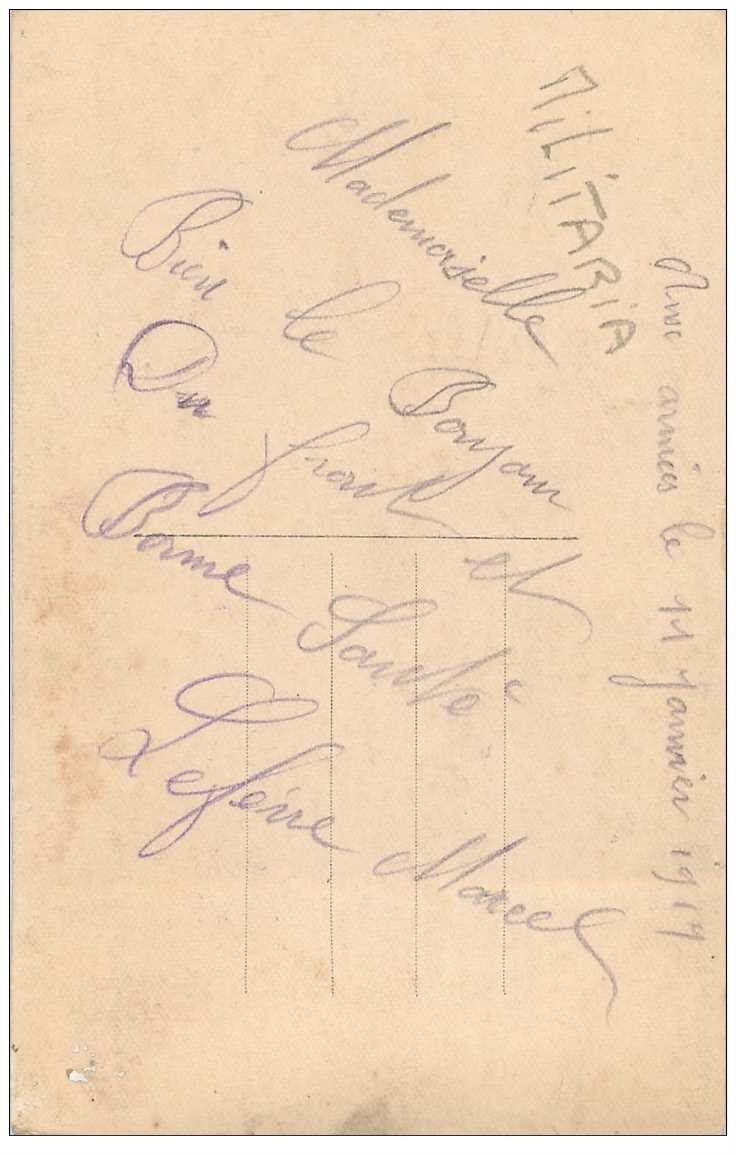 MILITARIA
aux armées le 11 Janvier 1917
Mademoiselle
Bien le Bonjour
Du front et
Bonne Santé
Lefèvre Marcel